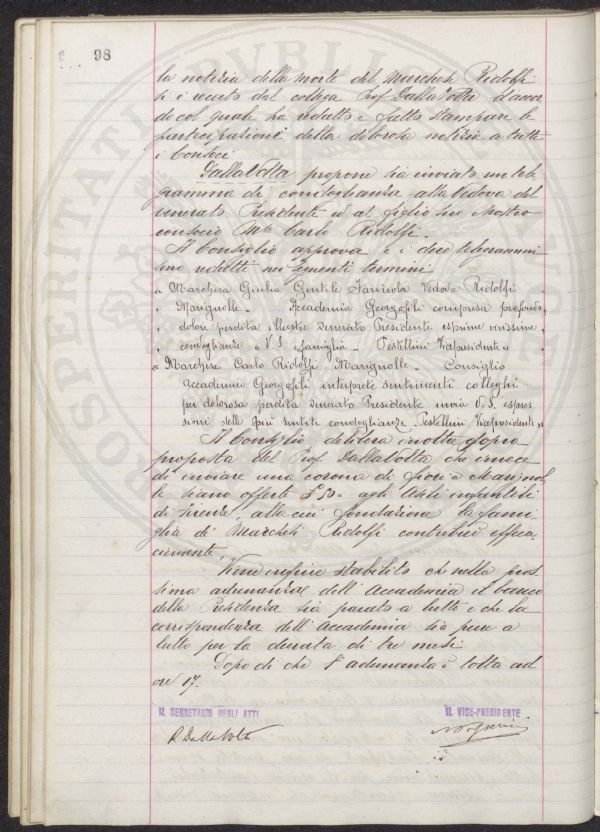 98
la notizia della morte del Marchese Ridolfi
si è recato dal collega Prof. Dalla Volta d'accor
do col quale ha redatto e fatto stampare le
partecipazioni della dolorosa notizia a tutti
i Consoci
Dalla Volta propone sia inviato un tele
gramma di condoglianza alla Vedova del
venerato Presidente ed al figlio suo Nostro
consocio Mse Carlo Ridolfi.
Il Consiglio approva e i due telegrammi
sono redatti nei seguenti termini:
« Marchesa Giulia Gentile Farinola Vedova Ridolfi
" Marignolle - Accademia Georgofili compresa profondo
" dolore perdita illustre venerato Presidente esprime vivissime
" condoglianze V.S. famiglia - Pestellini Vicepresidente »
« Marchese Carlo Ridolfi Marignolle - Consiglio
Accademia Georgofili interprete sentimenti colleghi
per dolorosa perdita venerato Presidente invia V.S. espres
sioni delle più sentite condoglianze - Pestellini Vicepresidente »
Il Consiglio delibera inoltre dopo
proposta del Prof. Dalla Volta che invece
di inviare una corona di fiori a Marignol
le siano offerte £ 50= agli Asili infantili
di Firenze, alla cui fondazione la fami
glia di Marchesi Ridolfi contribuì effica
cemente.
Viene infine stabilito che nella pros
sima adunanza dell'Accademia il banco
della Presidenza sia parato a lutto e che la
corrispondenza dell'Accademia sia pure a
lutto per la durata di tre mesi.
Dopo di che l'adunanza è tolta ad
ore 17.
IL SEGRETARIO DEGLI ATTI
IL VICE-PRESIDENTE
R. Dalla Volta